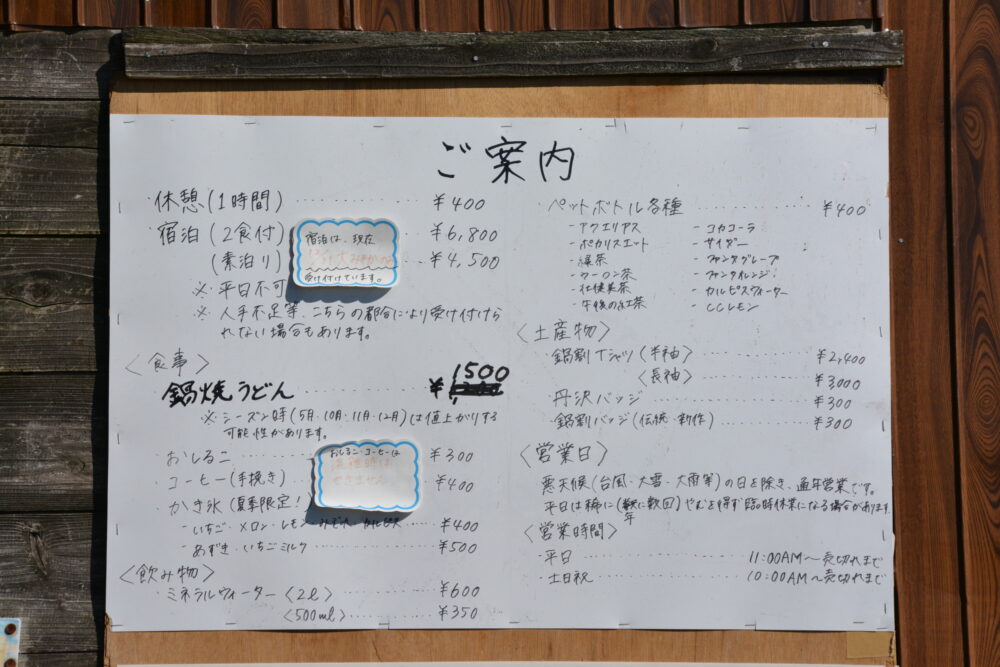 ご案内
・休憩(1時間) ¥400
・宿泊(2食付) ¥6,800
(素泊り) ¥4,500
※平日不可
※人手不足等、こちらの都合により受け付けら
れない場合もあります。
宿泊は、現在
受け付けています。
〈食事〉
鍋焼うどん ¥1500
※シーズン時(5月・10月・11月・12月)は値上がりする
可能性があります。
・おしるこ ¥300
・コーヒー(手挽き) ¥400
おしるこ・コーヒーは
・かき氷(夏季限定!)
-いちご・メロン・レモン・みぞれ・カルピス ¥400
-あずき・いちごミルク ¥500
〈飲み物〉
・ミネラルウォーター〈2ℓ〉 ¥600
〈500ml〉 ¥350
・ペットボトル各種 ¥400
-アクエリアス -コカコーラ
-ポカリスエット -サイダー
-緑茶 -ファンタグレープ
-ウーロン茶 -ファンタオレンジ
-爽健美茶 -カルピスウォーター
-午後の紅茶 -CCレモン
〈土産物〉
・鍋割Tシャツ(半袖) ¥2,400
〈長袖〉 ¥3,000
・丹沢バッジ ¥300
・鍋割バッジ(伝統・新作) ¥300
〈営業日〉
悪天候(台風・大雪・大雨等)の日を除き、通年営業です。
平日は稀に(年に数回)やむを得ず臨時休業になる場合があります。
〈営業時間〉
・平日 11:00AM～売切れまで
・土日祝 10:00AM～売切れまで